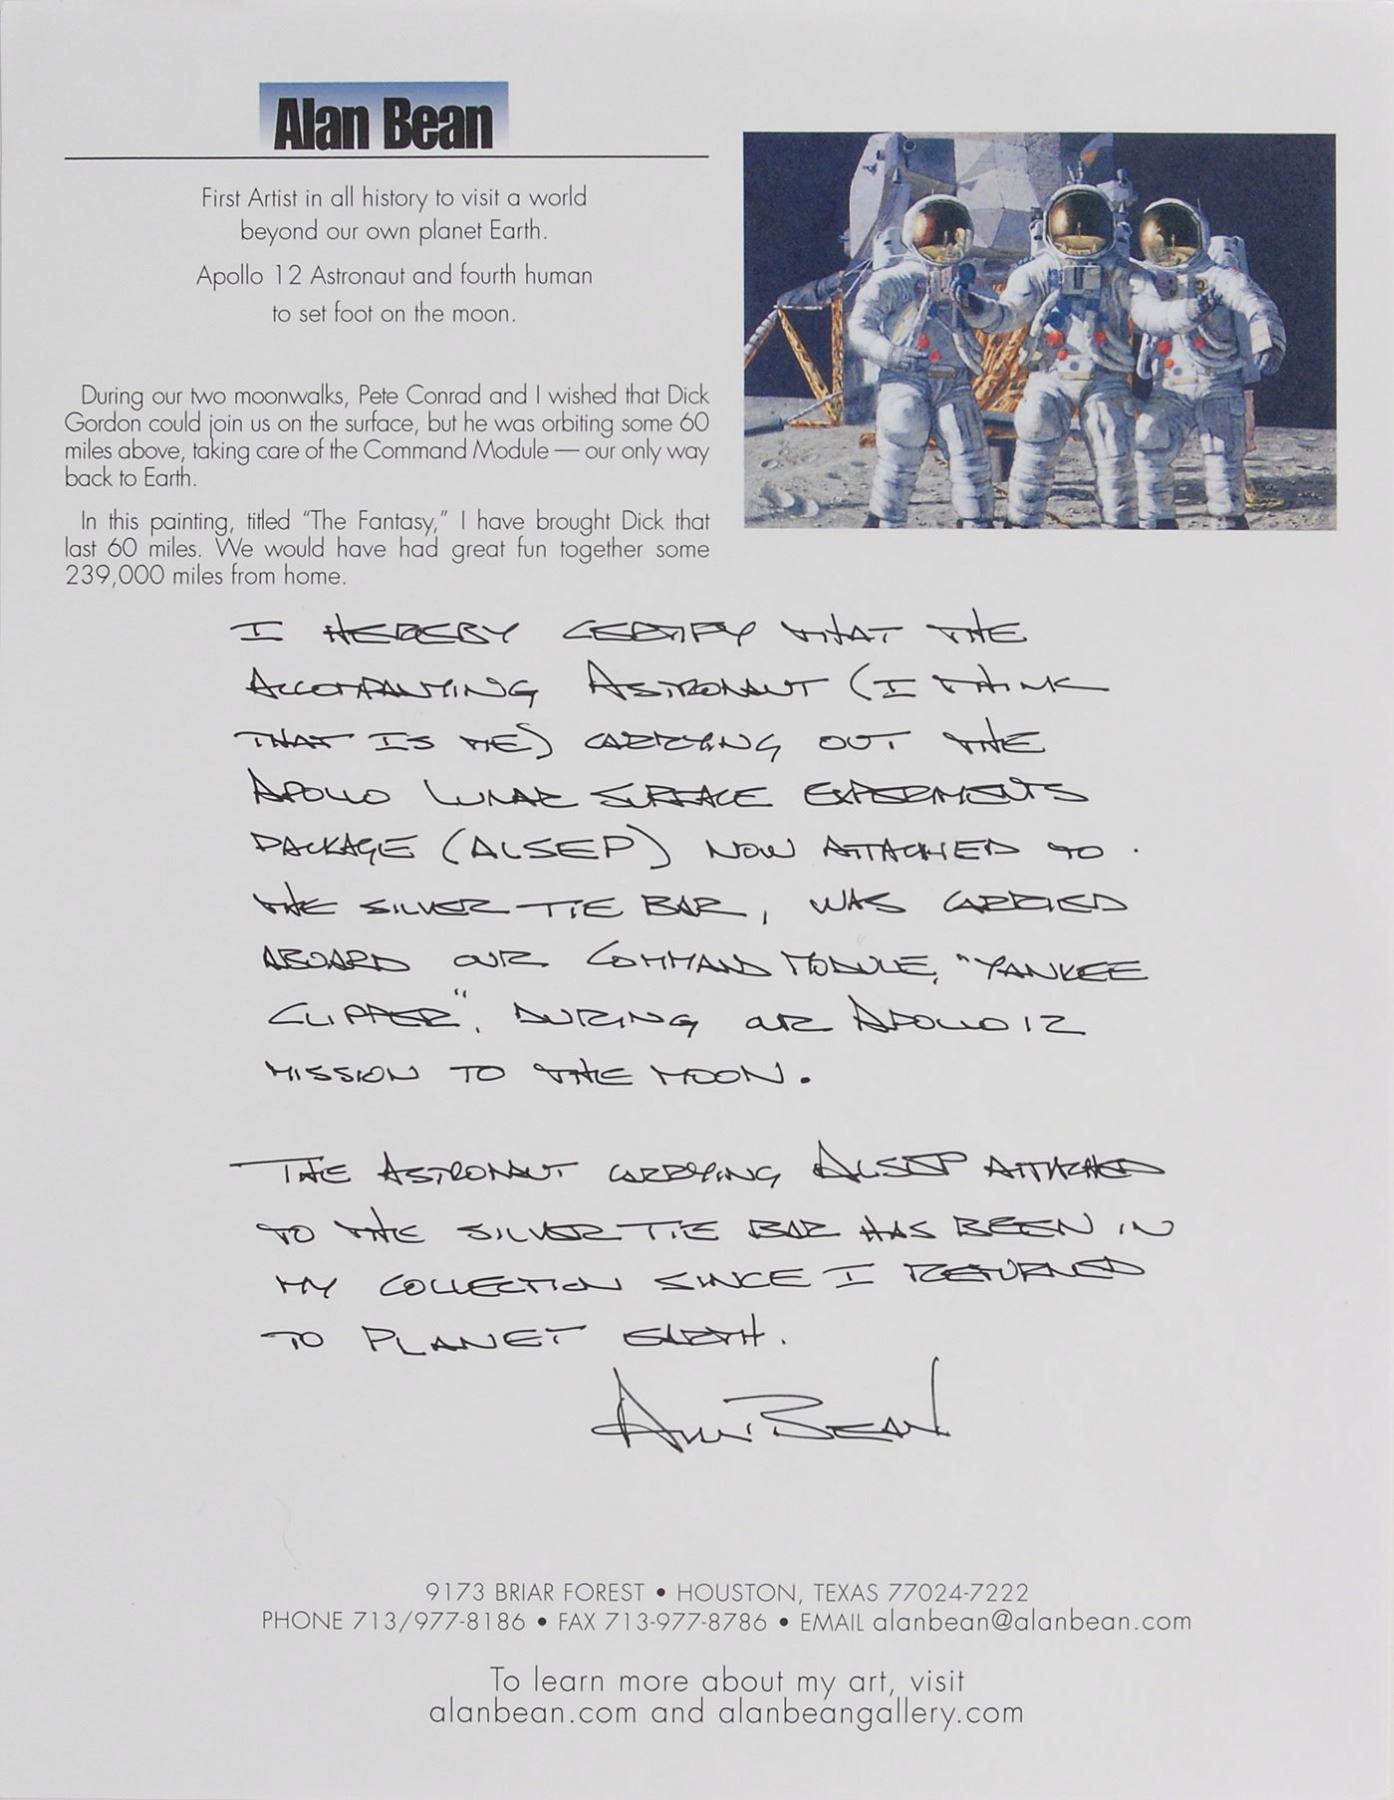 Alan Bean
First Artist in all history to visit a world
beyond our own planet Earth.
Apollo 12 Astronaut and fourth human
to set foot on the moon.
During our two moonwalks, Pete Conrad and I wished that Dick
Gordon could join us on the surface, but he was orbiting some 60
miles above, taking care of the Command Module — our only way
back to Earth.
In this painting, titled “The Fantasy,” I have brought Dick that
last 60 miles. We would have had great fun together some
239,000 miles from home.
I HEREBY CERTIFY THAT THE
ACCOMPANYING ASTRONAUT (I THINK
THAT IS ME) CARRYING OUT THE
APOLLO LUNAR SURFACE EXPERIMENTS
PACKAGE (ALSEP) NOW ATTACHED TO
THE SILVER TIE BAR, WAS CARRIED
ABOARD OUR COMMAND MODULE, "YANKEE
CLIPPER", DURING OUR APOLLO 12
MISSION TO THE MOON.
THE ASTRONAUT CARRYING ALSEP ATTACHED
TO THE SILVER TIE BAR HAS BEEN IN
MY COLLECTION SINCE I RETURNED
TO PLANET EARTH.
ALAN BEAN
9173 BRIAR FOREST • HOUSTON, TEXAS 77024-7222
PHONE 713/977-8186 • FAX 713-977-8786 • EMAIL alanbean@alanbean.com
To learn more about my art, visit
alanbean.com and alanbeangallery.com